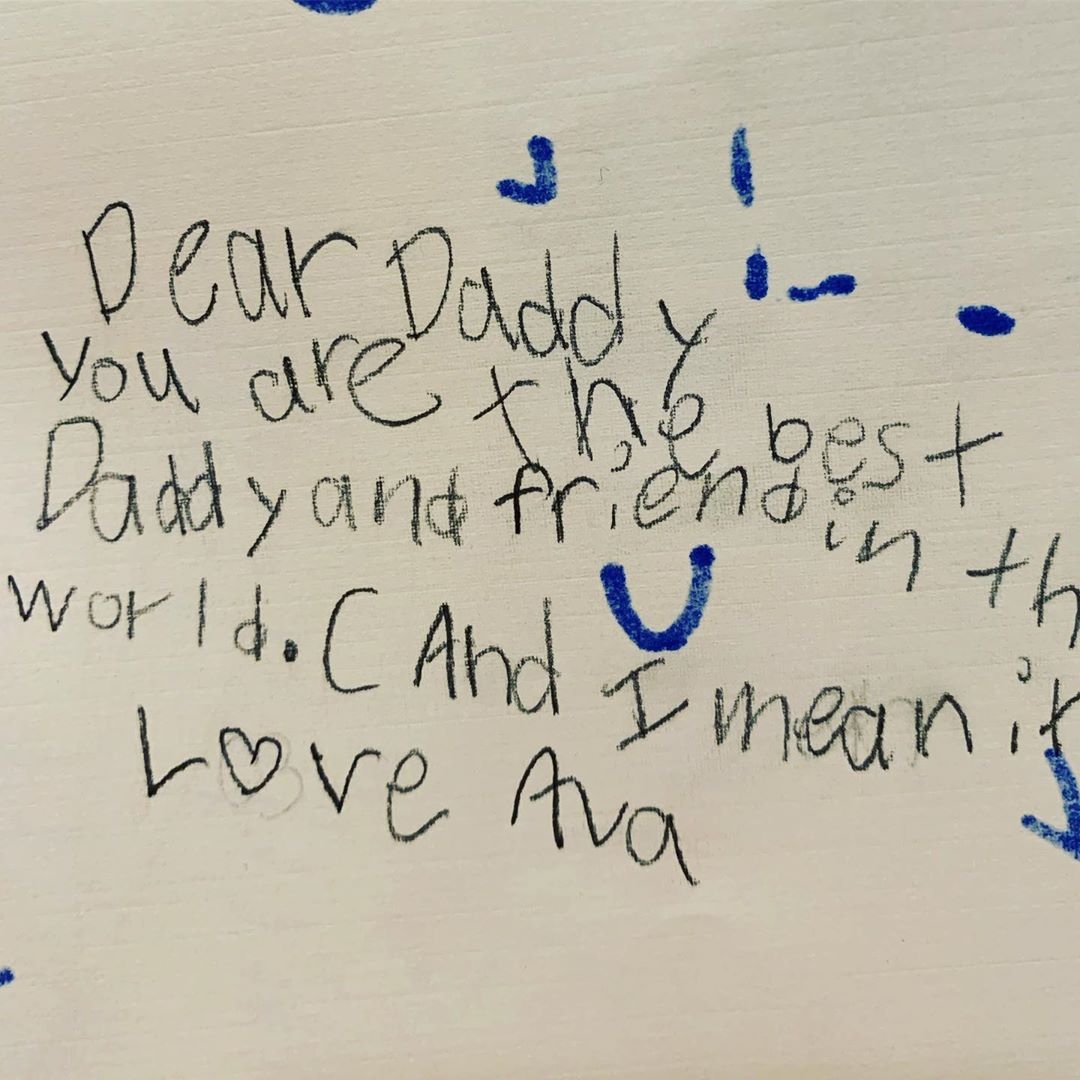 Dear Daddy
you are the best
Daddy and friend in th
world. (And I mean it
Love Ava